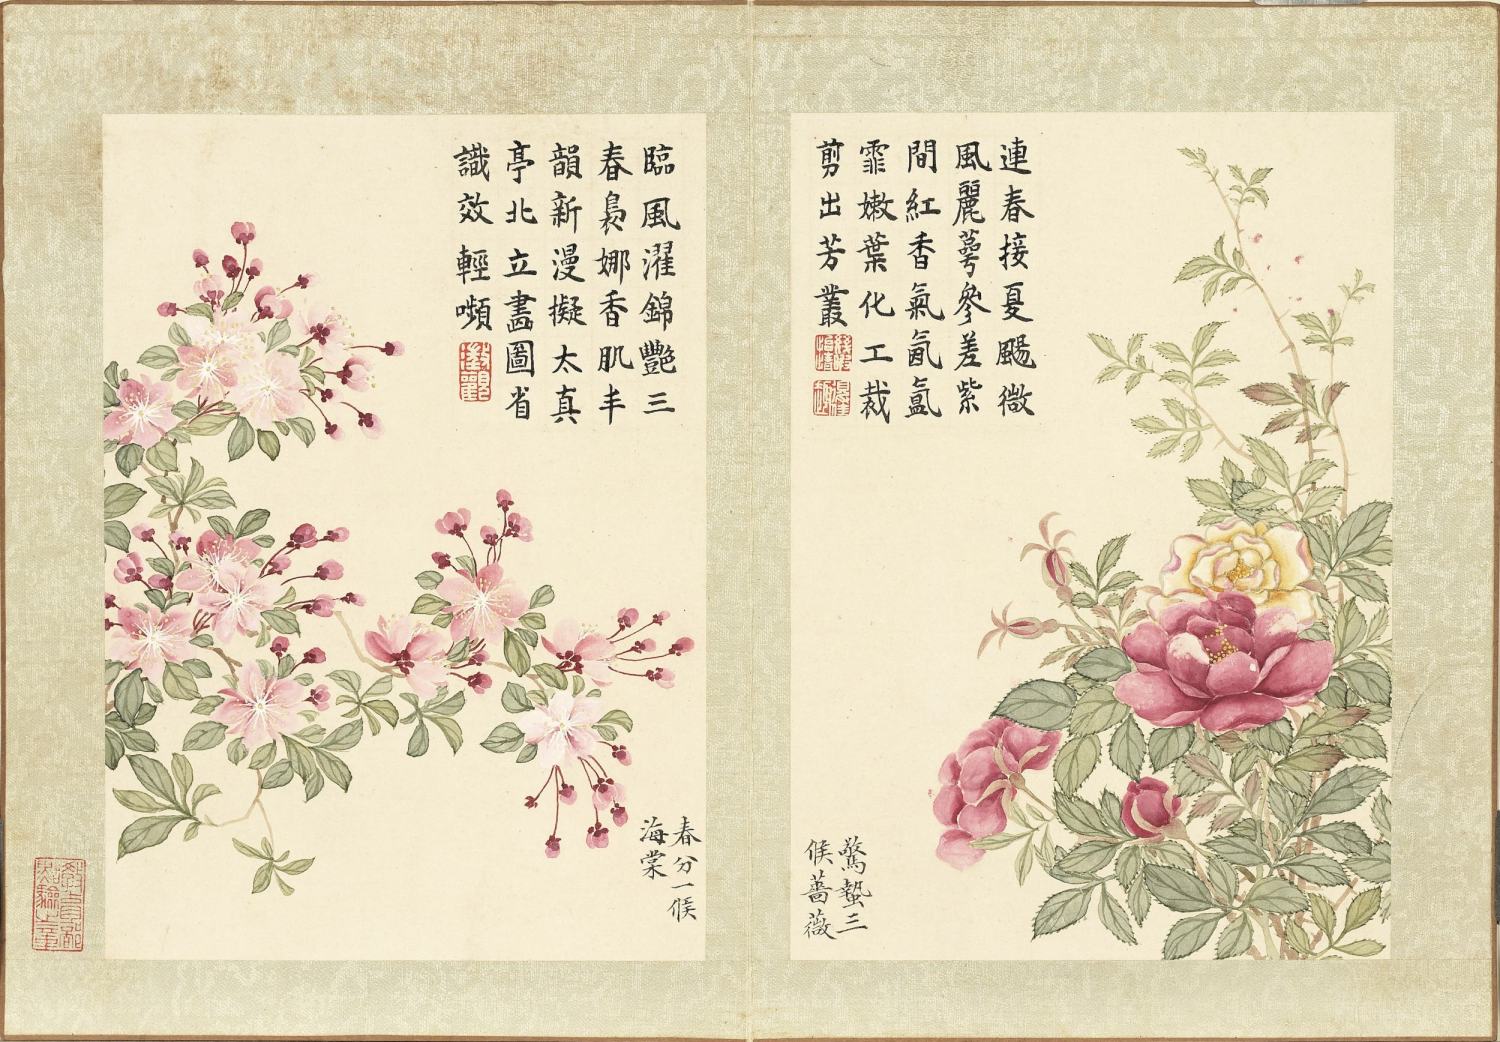 連春接夏颺微
風麗蕚參差紫
間紅香氣氤氳
霏嫩葉化工裁
剪出芳叢
驚蟄三
候薔薇
臨風濯錦艷三
春裊娜香肌丰
韻新漫擬太真
亭北立畵圖省
識效輕嚬
春分一候
海棠